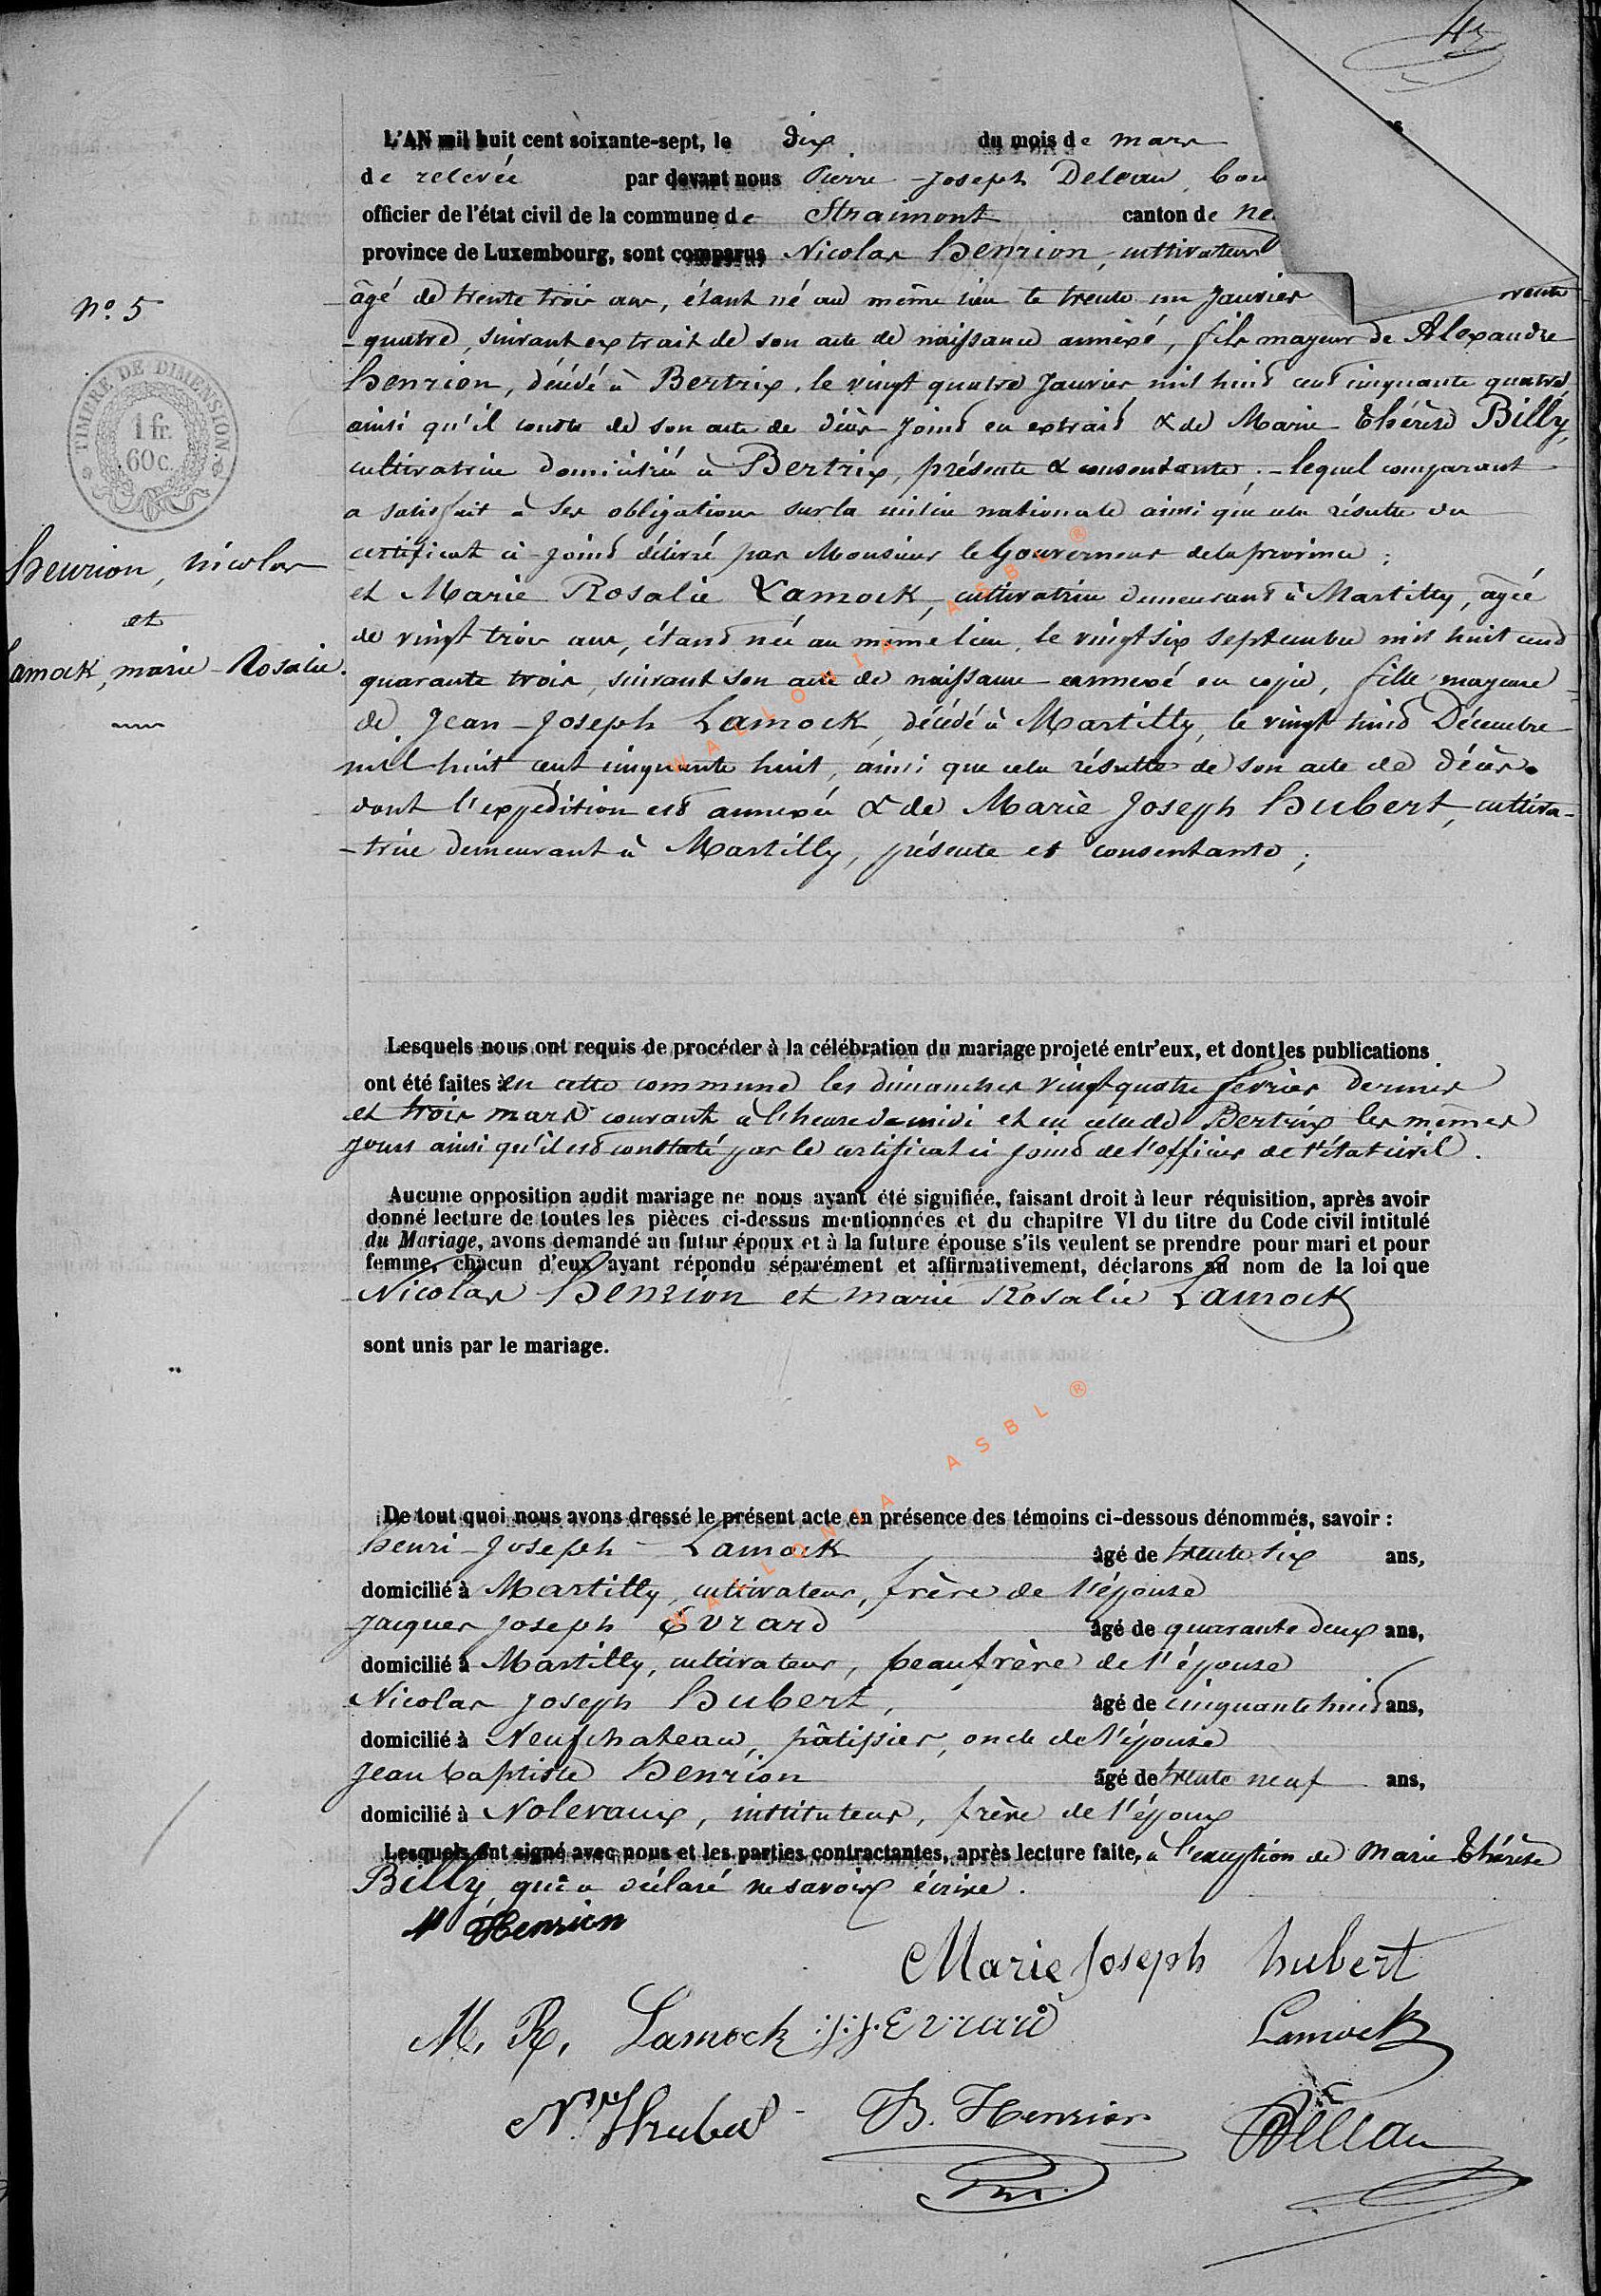 L'AN mil huit cent soixante-sept, le dix du mois de mars
de relevée par devant nous Pierre-Joseph Deleau,
officier de l'état civil de la commune de Straimont canton de
province de Luxembourg, sont comparus Nicolas Henrion, cultivateur
âgé de trente trois ans, étant né au même lieu le trente un Janvier
-quatre, suivant extrait de son acte de naissance annexé, fils majeur de Alexandre
Henrion, décédé à Bertrix, le vingt quatre Janvier mil huit cent cinquante quatre,
ainsi qu'il conste de son acte de décès joint en extrait & de Marie Thérèse Billy,
cultivatrice domiciliée à Bertrix, présente & consentante; - lequel comparant
a satisfait à ses obligations sur la milice nationale ainsi que cela résulte du
certificat ci-joint délivré par Monsieur le Gouverneur de la province;
et Marie Rosalie Lamock, cultivatrice demeurant à Martilly, âgée
de vingt trois ans, étant née au même lieu, le vingt six septembre mil huit cent
quarante trois, suivant son acte de naissance annexé en copie, fille majeure
de Jean-Joseph Lamock, décédé à Martilly, le vingt huit Décembre
mil huit cent cinquante huit, ainsi que cela résulte de son acte de décès
dont l'expédition est annexée & de Marie Joseph Hubert, cultiva-
-trice demeurant à Martilly, présente et consentante;
N° 5
TIMBRE DE DIMENSION.
1 fr.
60 c.
Henrion, Nicolas
et
Lamock, marie-Rosalie.
Lesquels nous ont requis de procéder à la célébration du mariage projeté entr'eux, et dont les publications
ont été faites en cette commune les dimanches vingt quatre février dernier
et trois mars courant à l'heure de midi et en celle de Bertrix les mêmes
jours ainsi qu'il est constaté par le certificat ci joint de l'officier de l'état civil.
Aucune opposition audit mariage ne nous ayant été signifiée, faisant droit à leur réquisition, après avoir
donné lecture de toutes les pièces ci-dessus mentionnées et du chapitre VI du titre du Code civil intitulé
du Mariage, avons demandé au futur époux et à la future épouse s'ils veulent se prendre pour mari et pour
femme, chacun d'eux ayant répondu séparément et affirmativement, déclarons au nom de la loi que
Nicolas Henrion et marie Rosalie Lamock
sont unis par le mariage.
De tout quoi nous avons dressé le présent acte en présence des témoins ci-dessous dénommés, savoir :
henri-Joseph Lamock âgé de trente six ans,
domicilié à Martilly, cultivateur, frère de l'épouse
Jacques Joseph Evrard âgé de quarante deux ans,
domicilié à Martilly, cultivateur, beau frère de l'épouse
Nicolas Joseph Hubert, âgé de cinquante huit ans,
domicilié à Neufchateau, pâtissier, oncle de l'épouse
Jean baptiste Henrion âgé de trente neuf ans,
domicilié à Nolevaux, instituteur, frère de l'époux
Lesquels ont signé avec nous et les parties contractantes, après lecture faite, à l'exception de Marie Thérèse
Billy, qui a déclaré ne savoir écrire.
N Henrion
Marie Joseph hubert
M. R. Lamock J.J. Evrard Lamock
N. J Hubert B. Henrion Deleau
WALLONIA ASBL ®
WALLONIA ASBL ®